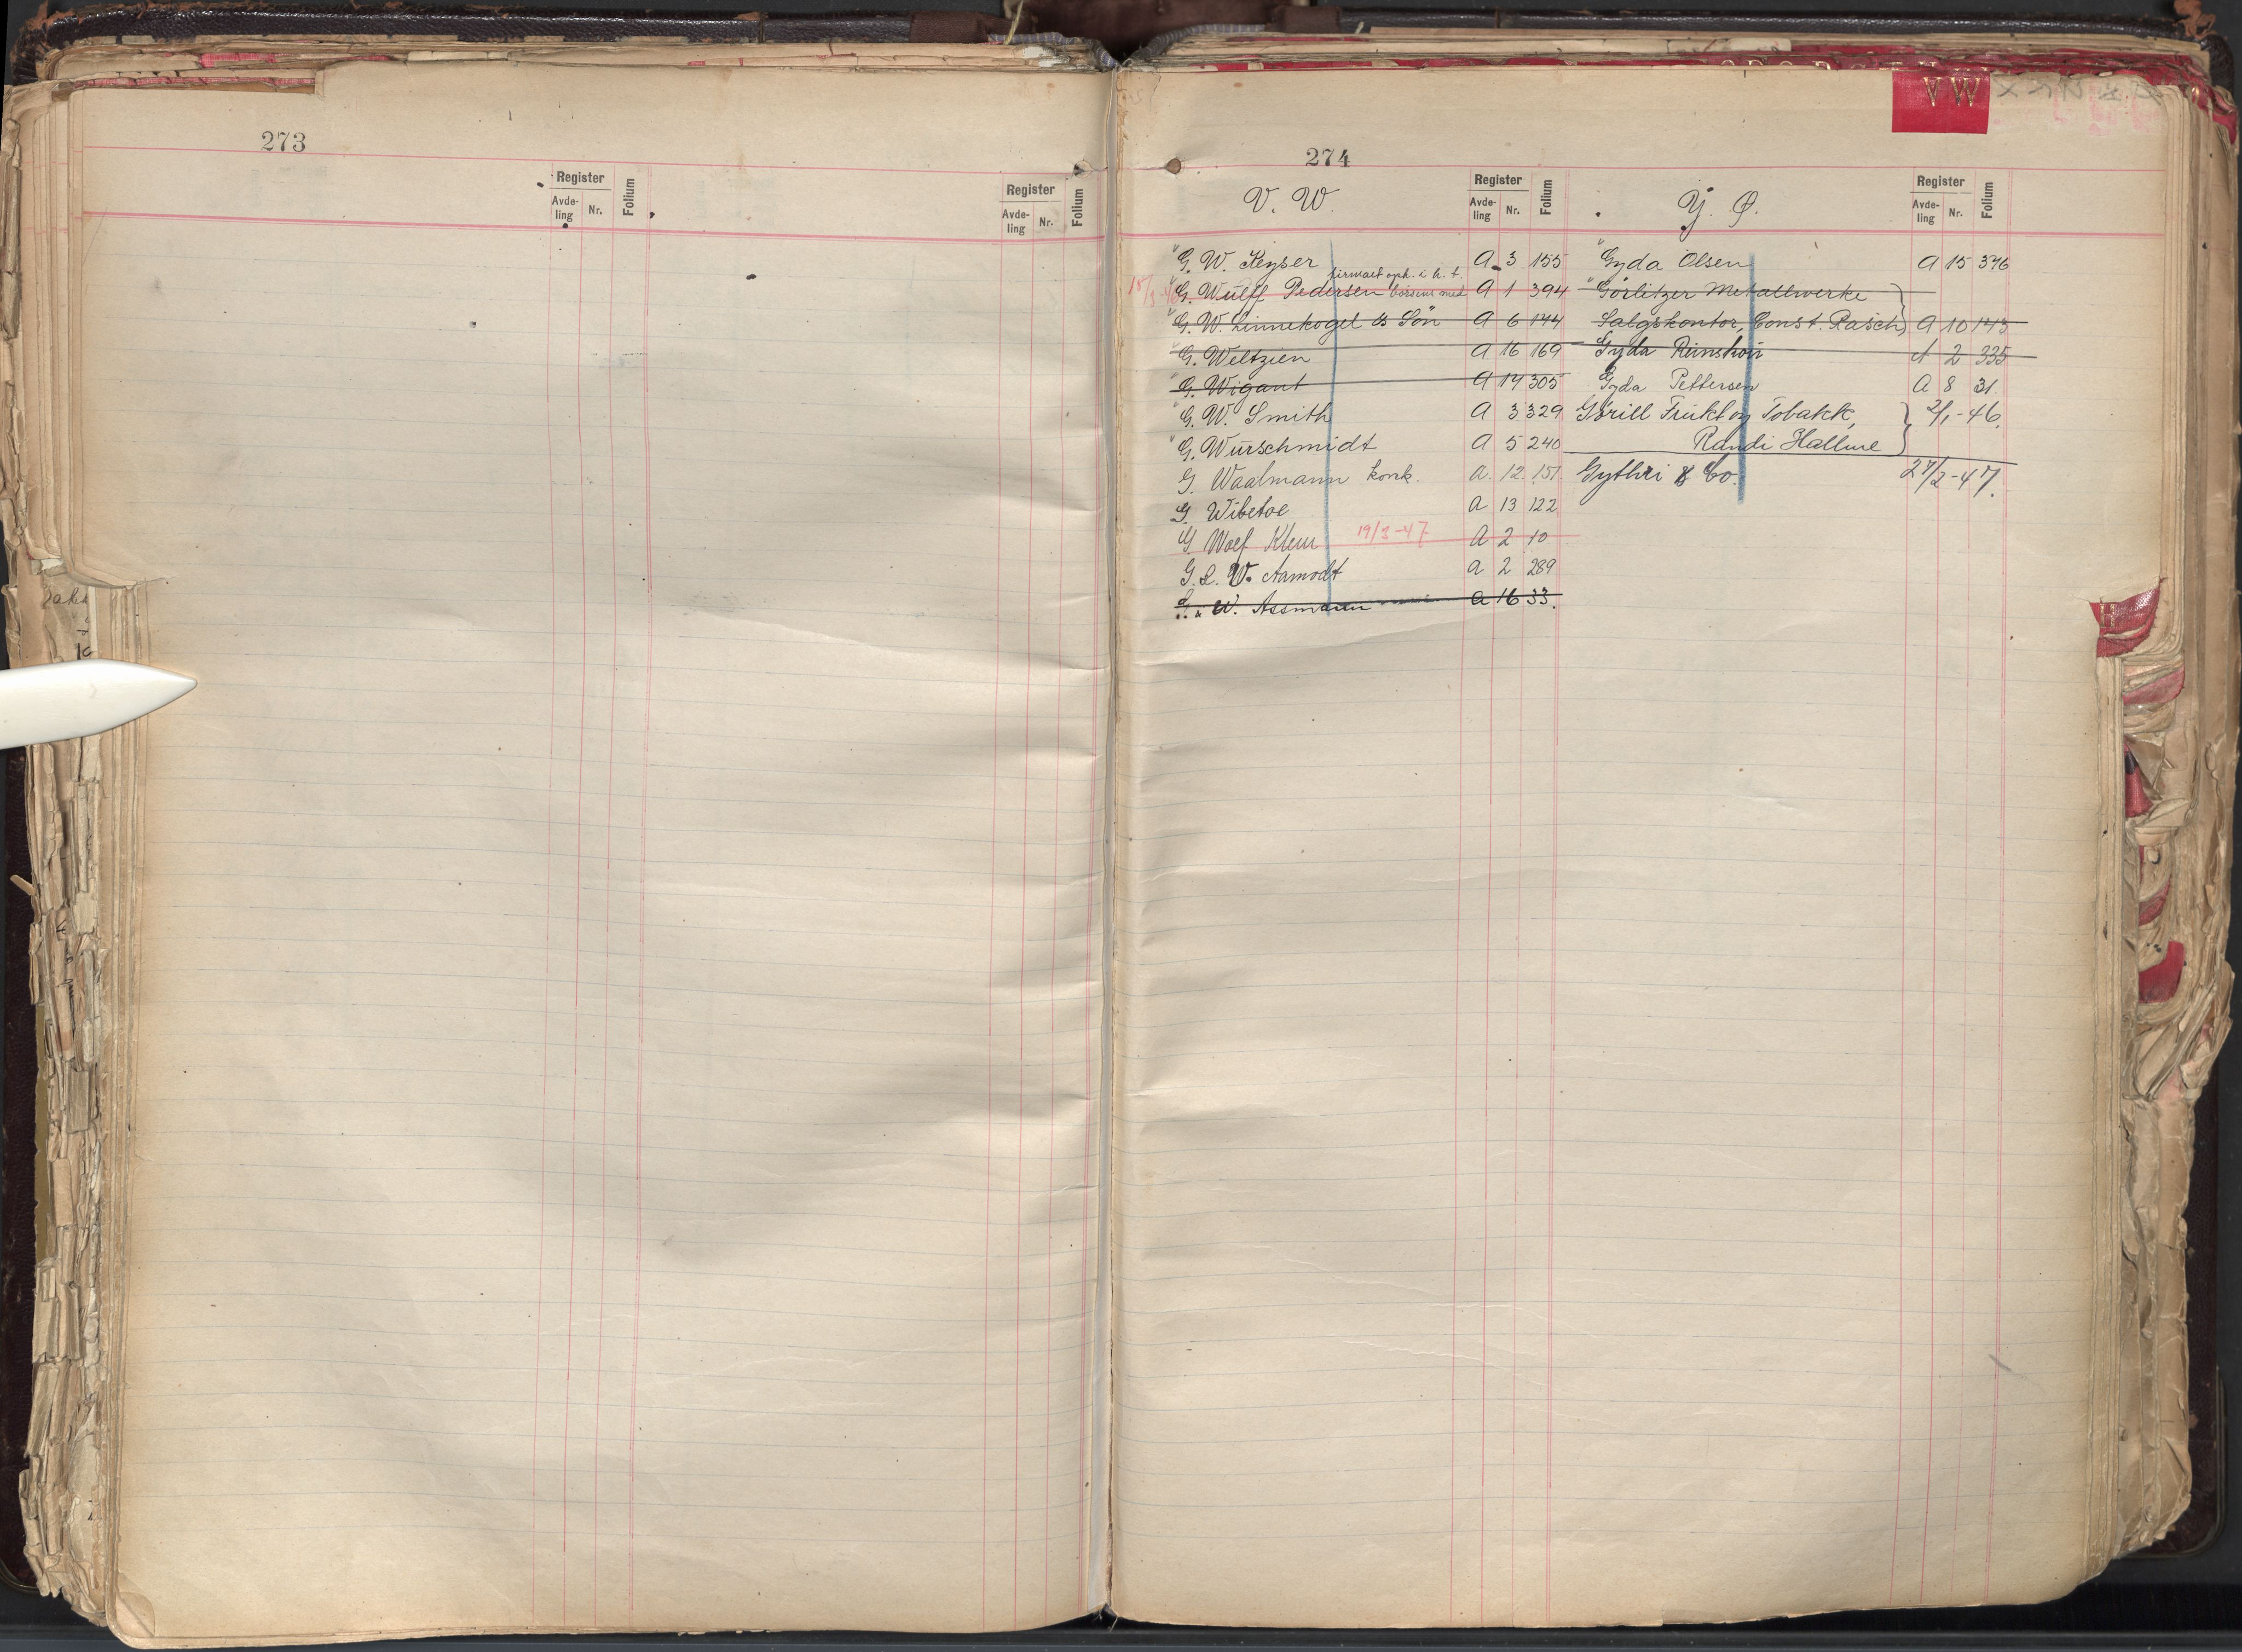 273
Register
Avde-
ling
Nr.
Folium
Register
Avde-
ling
Nr.
Folium
V W
274
V. W.
Register
Avde-
ling
Nr.
Folium
Y. Ø.
Register
Avde-
ling
Nr.
Folium
" G. W. Keyser A 3 155
firmaet oph. i h. t.
" G. Wülff Pedersen A 1 394
" G. W. Linnekogel & Sön A 6 144
" G. Weltzien A 16 169
" G. Wigant A 14 305
" G. W. Smith A 3 329
" G. Würschmidt A 5 240
G. Waalmann konk. A. 12. 151.
G. Wibetoe A 13 122
G. Wolf Klem 19/3-47 A 2 10
G. L. W. Aamodt A 2 289
G. & W. Assmann A 16 33.
" Gyda Olsen A 15 376
" Görlitzer Metallwerke
Salgskontor, Const. Rasch A 10 143
Gyda Runshou A 2 335
Gyda Pettersen A 8 31
Görill Frukt og Tobakk, 2/1-46.
Randi Hallme
Gythri & Co. 27/2-47.